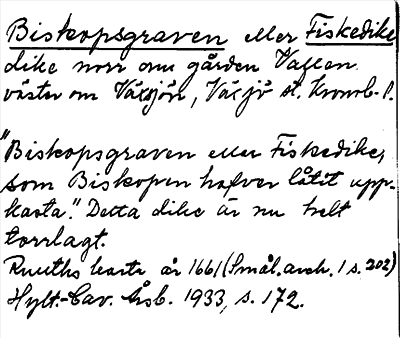 Biskopsgraven eller Fiskedike
dike norr om gården Vallen
väster om Växjön, Växjö st. Kronob. l.
"Biskopsgraven eller Fiskedike,
som Biskopen hafver låtit upp-
kasta." Detta dike är nu helt
torrlagt.
Ruuths karta år 1661 (Smål. arch. 1 s. 202)
Hylt.-Cav. Årsb. 1933, s. 172.